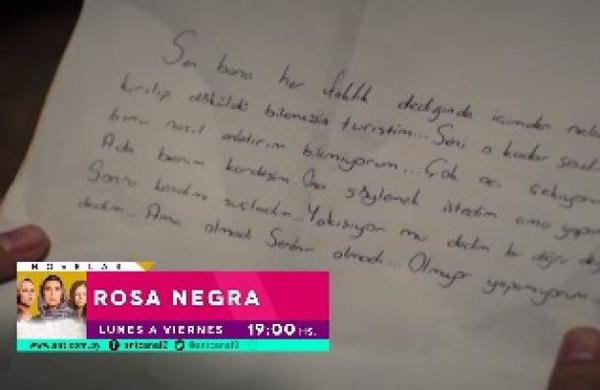 Sen bana her ufaklık dediğinde içimden neler
kırılıp döküldü bilemezsin turistim... Seni o kadar
bunu nasıl anlatırım bilemiyorum... Çok acı çekiyorum
Ada benim kardeşim. Ona söylemek istedim ama
Sonra kendimi suçladım... Yakışıyor mu dedim bir diğer
dedim... Ama olmadı Serdar olmadı... Olmuyor yapamıyorum...
NOVELAS
ROSA NEGRA
LUNES A VIERNES 19:00 HS.
www.snt.com.py sntcanal9 @sntcanal9